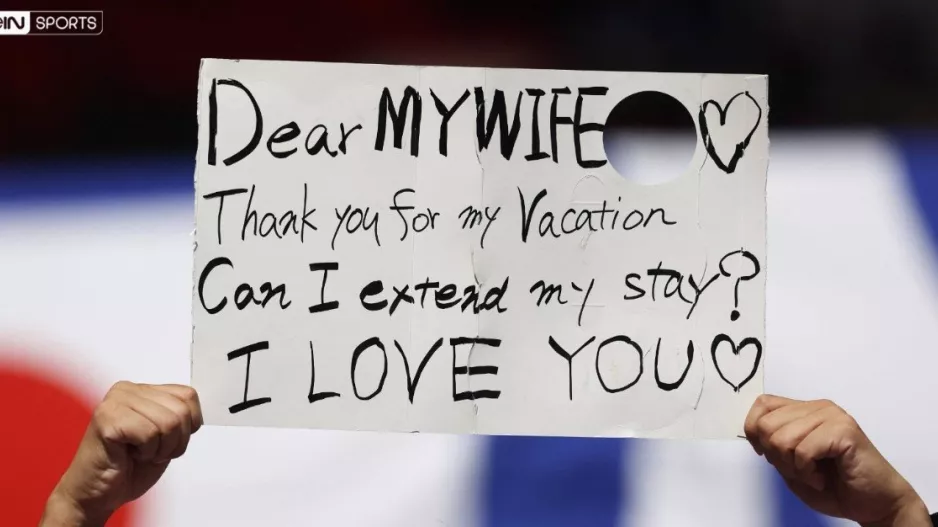 SPORTS
Dear MY WIFE ♡
Thank you for my Vacation
Can I extend my stay?
I LOVE YOU ♡